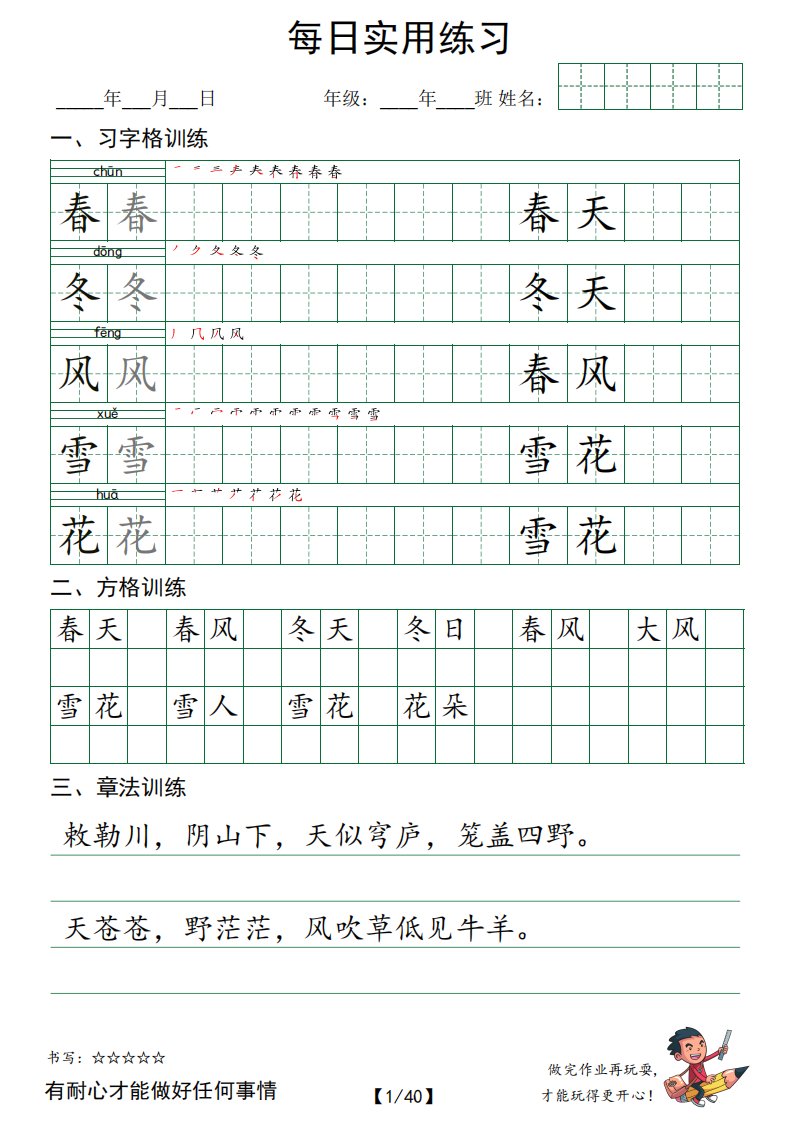 每日实用练习
_____年___月___日 年级：____年____班 姓名：
一、习字格训练
chūn
春 春 春 天
dōng 丿 夂 冬
冬 冬 冬 天
fēng 丿 几 风 风
风 风 春 风
xuě
雪 雪 雪 花
huā
花 花 雪 花
二、方格训练
春天 春风 冬天 冬日 春风 大风
雪花 雪人 雪花 花朵
三、章法训练
敕勒川，阴山下，天似穹庐，笼盖四野。
天苍苍，野茫茫，风吹草低见牛羊。
书写：☆☆☆☆☆
做完作业再玩耍，
有耐心才能做好任何事情 【1/40】 才能玩得更开心！